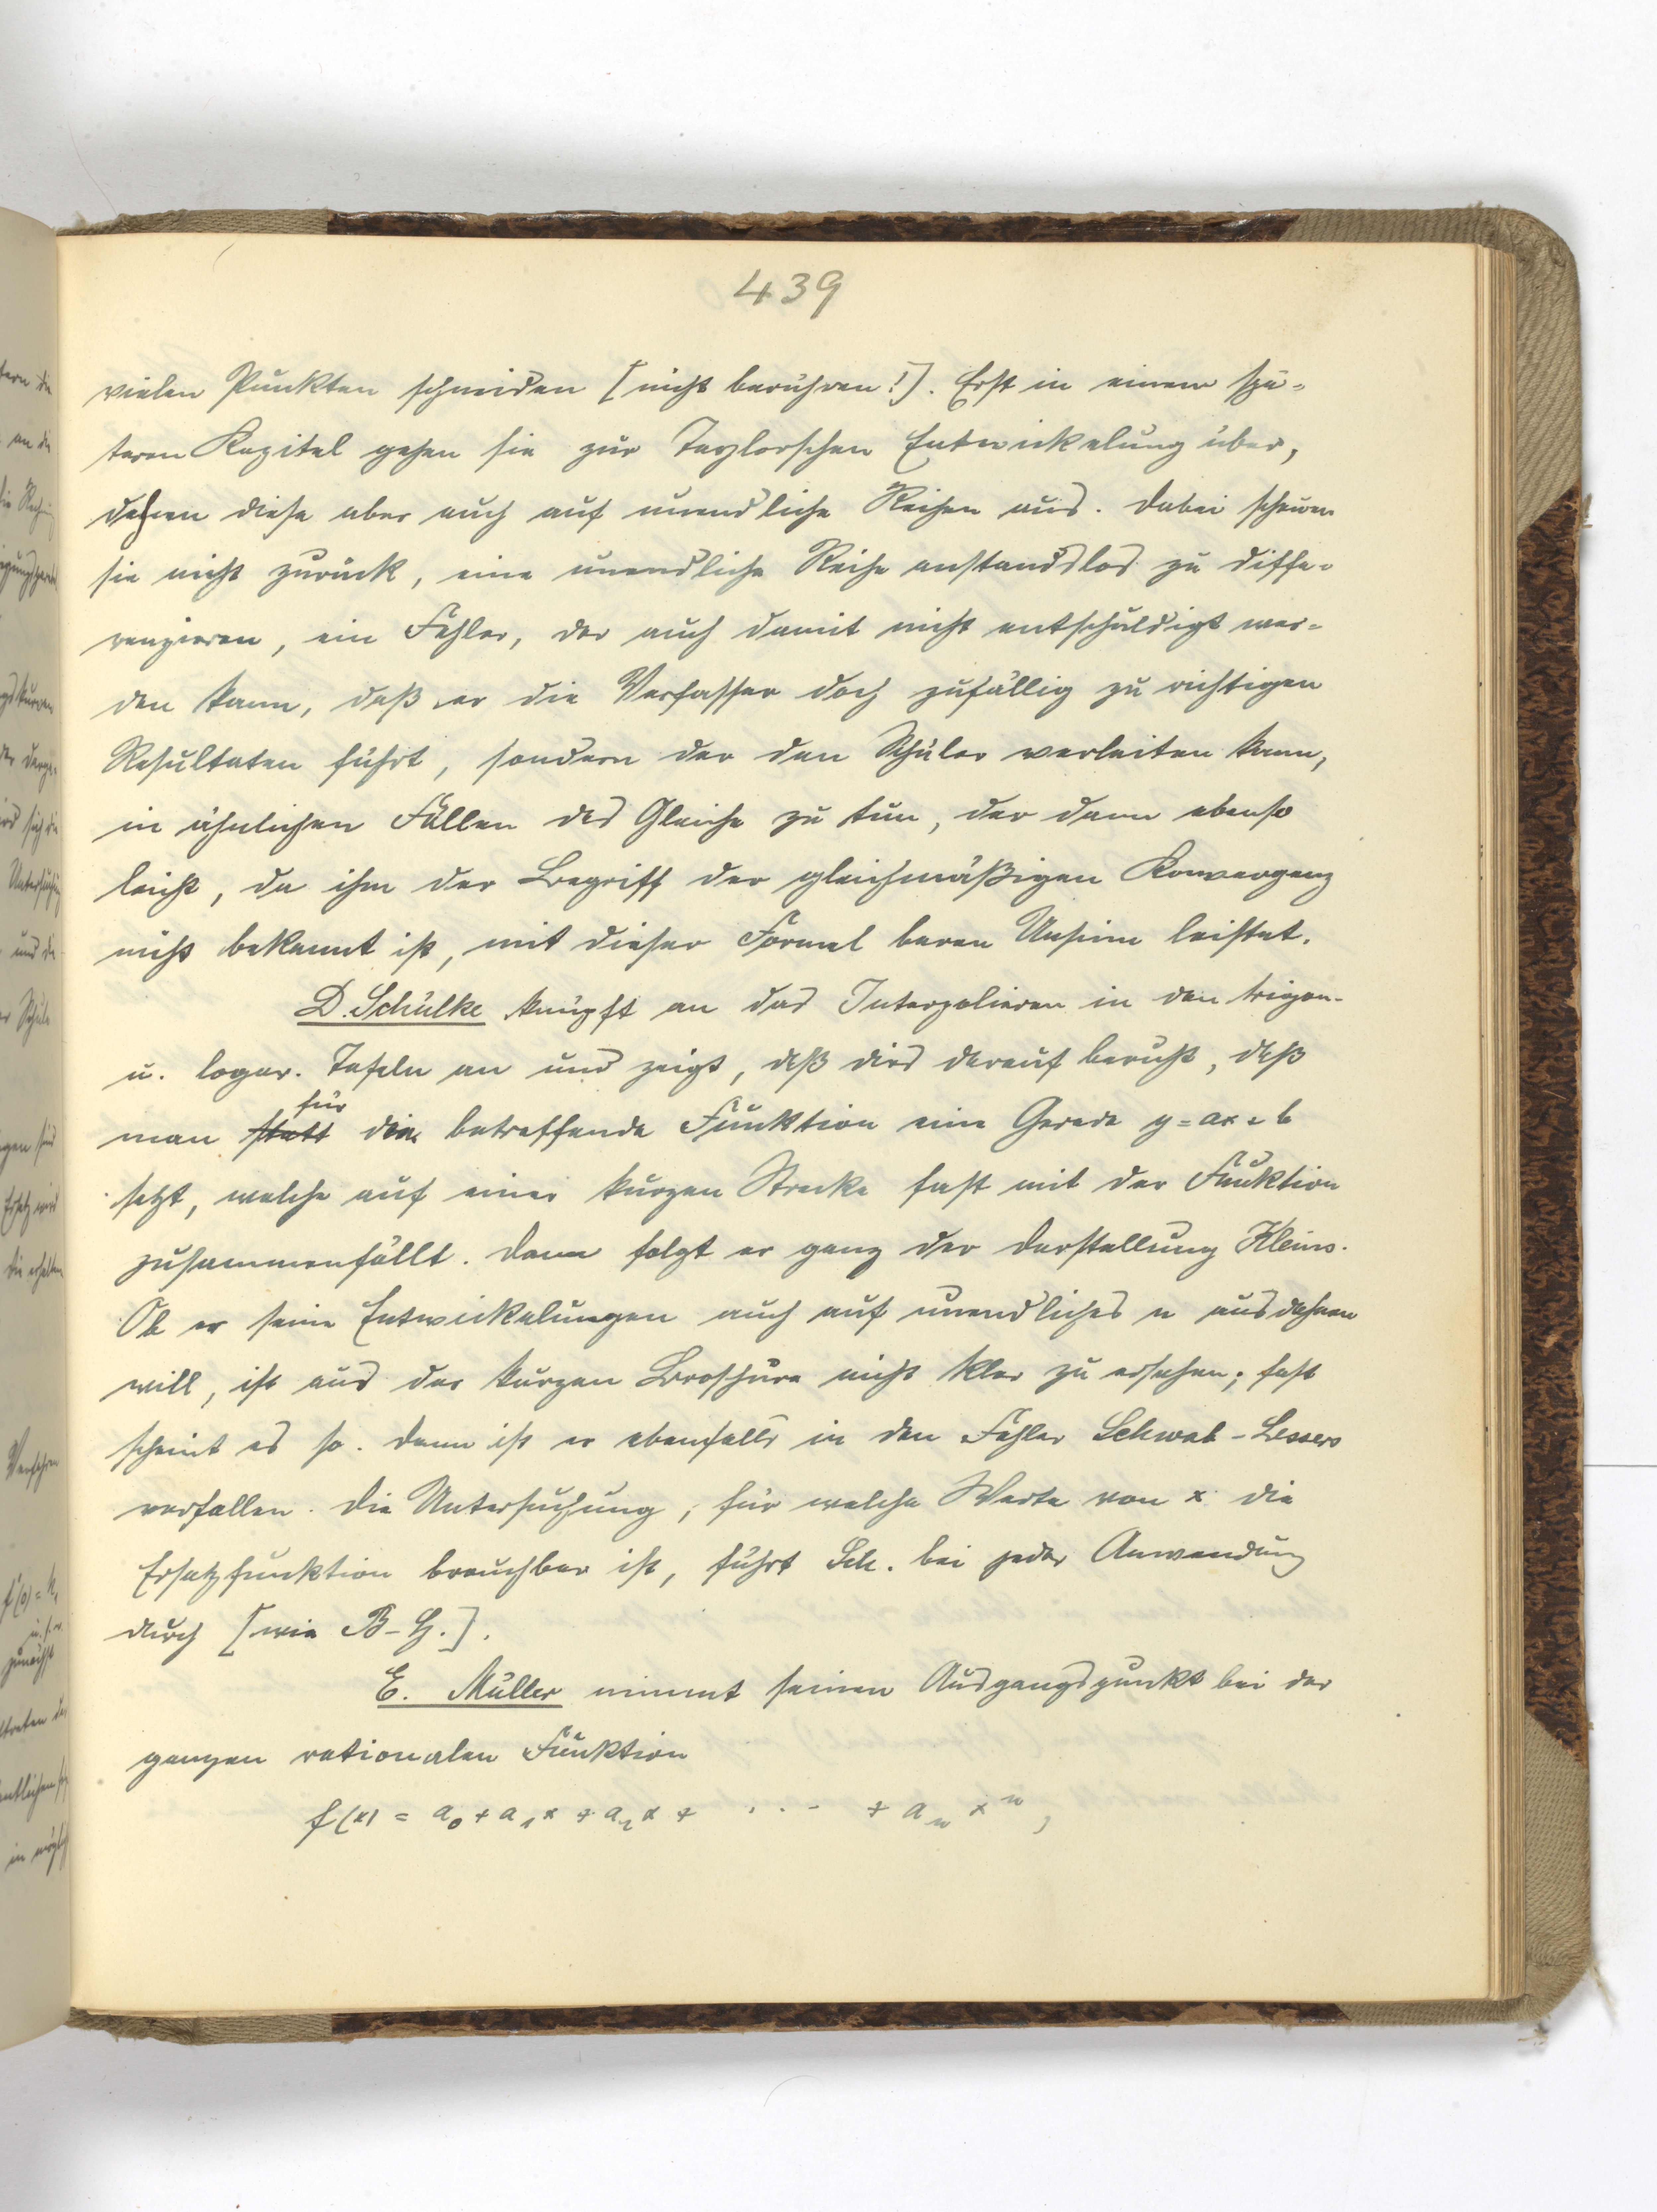 439
vielen Punkten schneiden [nicht berühren!]. Erst in einem spä-
teren Kapitel gehen sie zur Taylorschen Entwickelung über,
dehnen diese aber auch auf unendliche Reihen aus. Dabei scheuen
sie nicht zurück, eine unendliche Reihe anstandslos zu diffe-
renzieren, ein Fehler, der auch damit nicht entschuldigt wer-
den kann, daß er die Verfasser doch zufällig zu richtigen
Resultaten führt, sondern der den Schüler verleiten kann,
in ähnlichen Fällen das Gleiche zu tun, der dann ebenso
leicht, da ihm der Begriff der gleichmäßigen Konvergenz
nicht bekannt ist, mit dieser Formel baren Unsinn leistet.
D. Schülke knüpft an das Interpolieren in den trigon.
u. logar. Tafeln an und zeigt, daß dies darauf beruht, daß
für
man statt die betreffende Funktion eine Gerade y = ax + b
setzt, welche auf einer kurzen Strecke fast mit der Funktion
zusammenfällt. Dann folgt er ganz der Darstellung Kleins.
Ob er seine Entwickelungen auch auf unendliches n ausdehnen
will, ist aus der kurzen Broschüre nicht klar zu ersehen; fast
scheint es so. Dann ist er ebenfalls in den Fehler Schwab-Lessers
verfallen. Die Untersuchung, für welche Werte von x die
Ersatzfunktion brauchbar ist, führt Sch. bei jeder Anwendung
durch [wie B-G.].
E. Müller nimmt seinen Ausgangspunkt bei der
ganzen rationalen Funktion
f(x) = a₀ + a₁x + a₂x + . . . + aₙxⁿ,